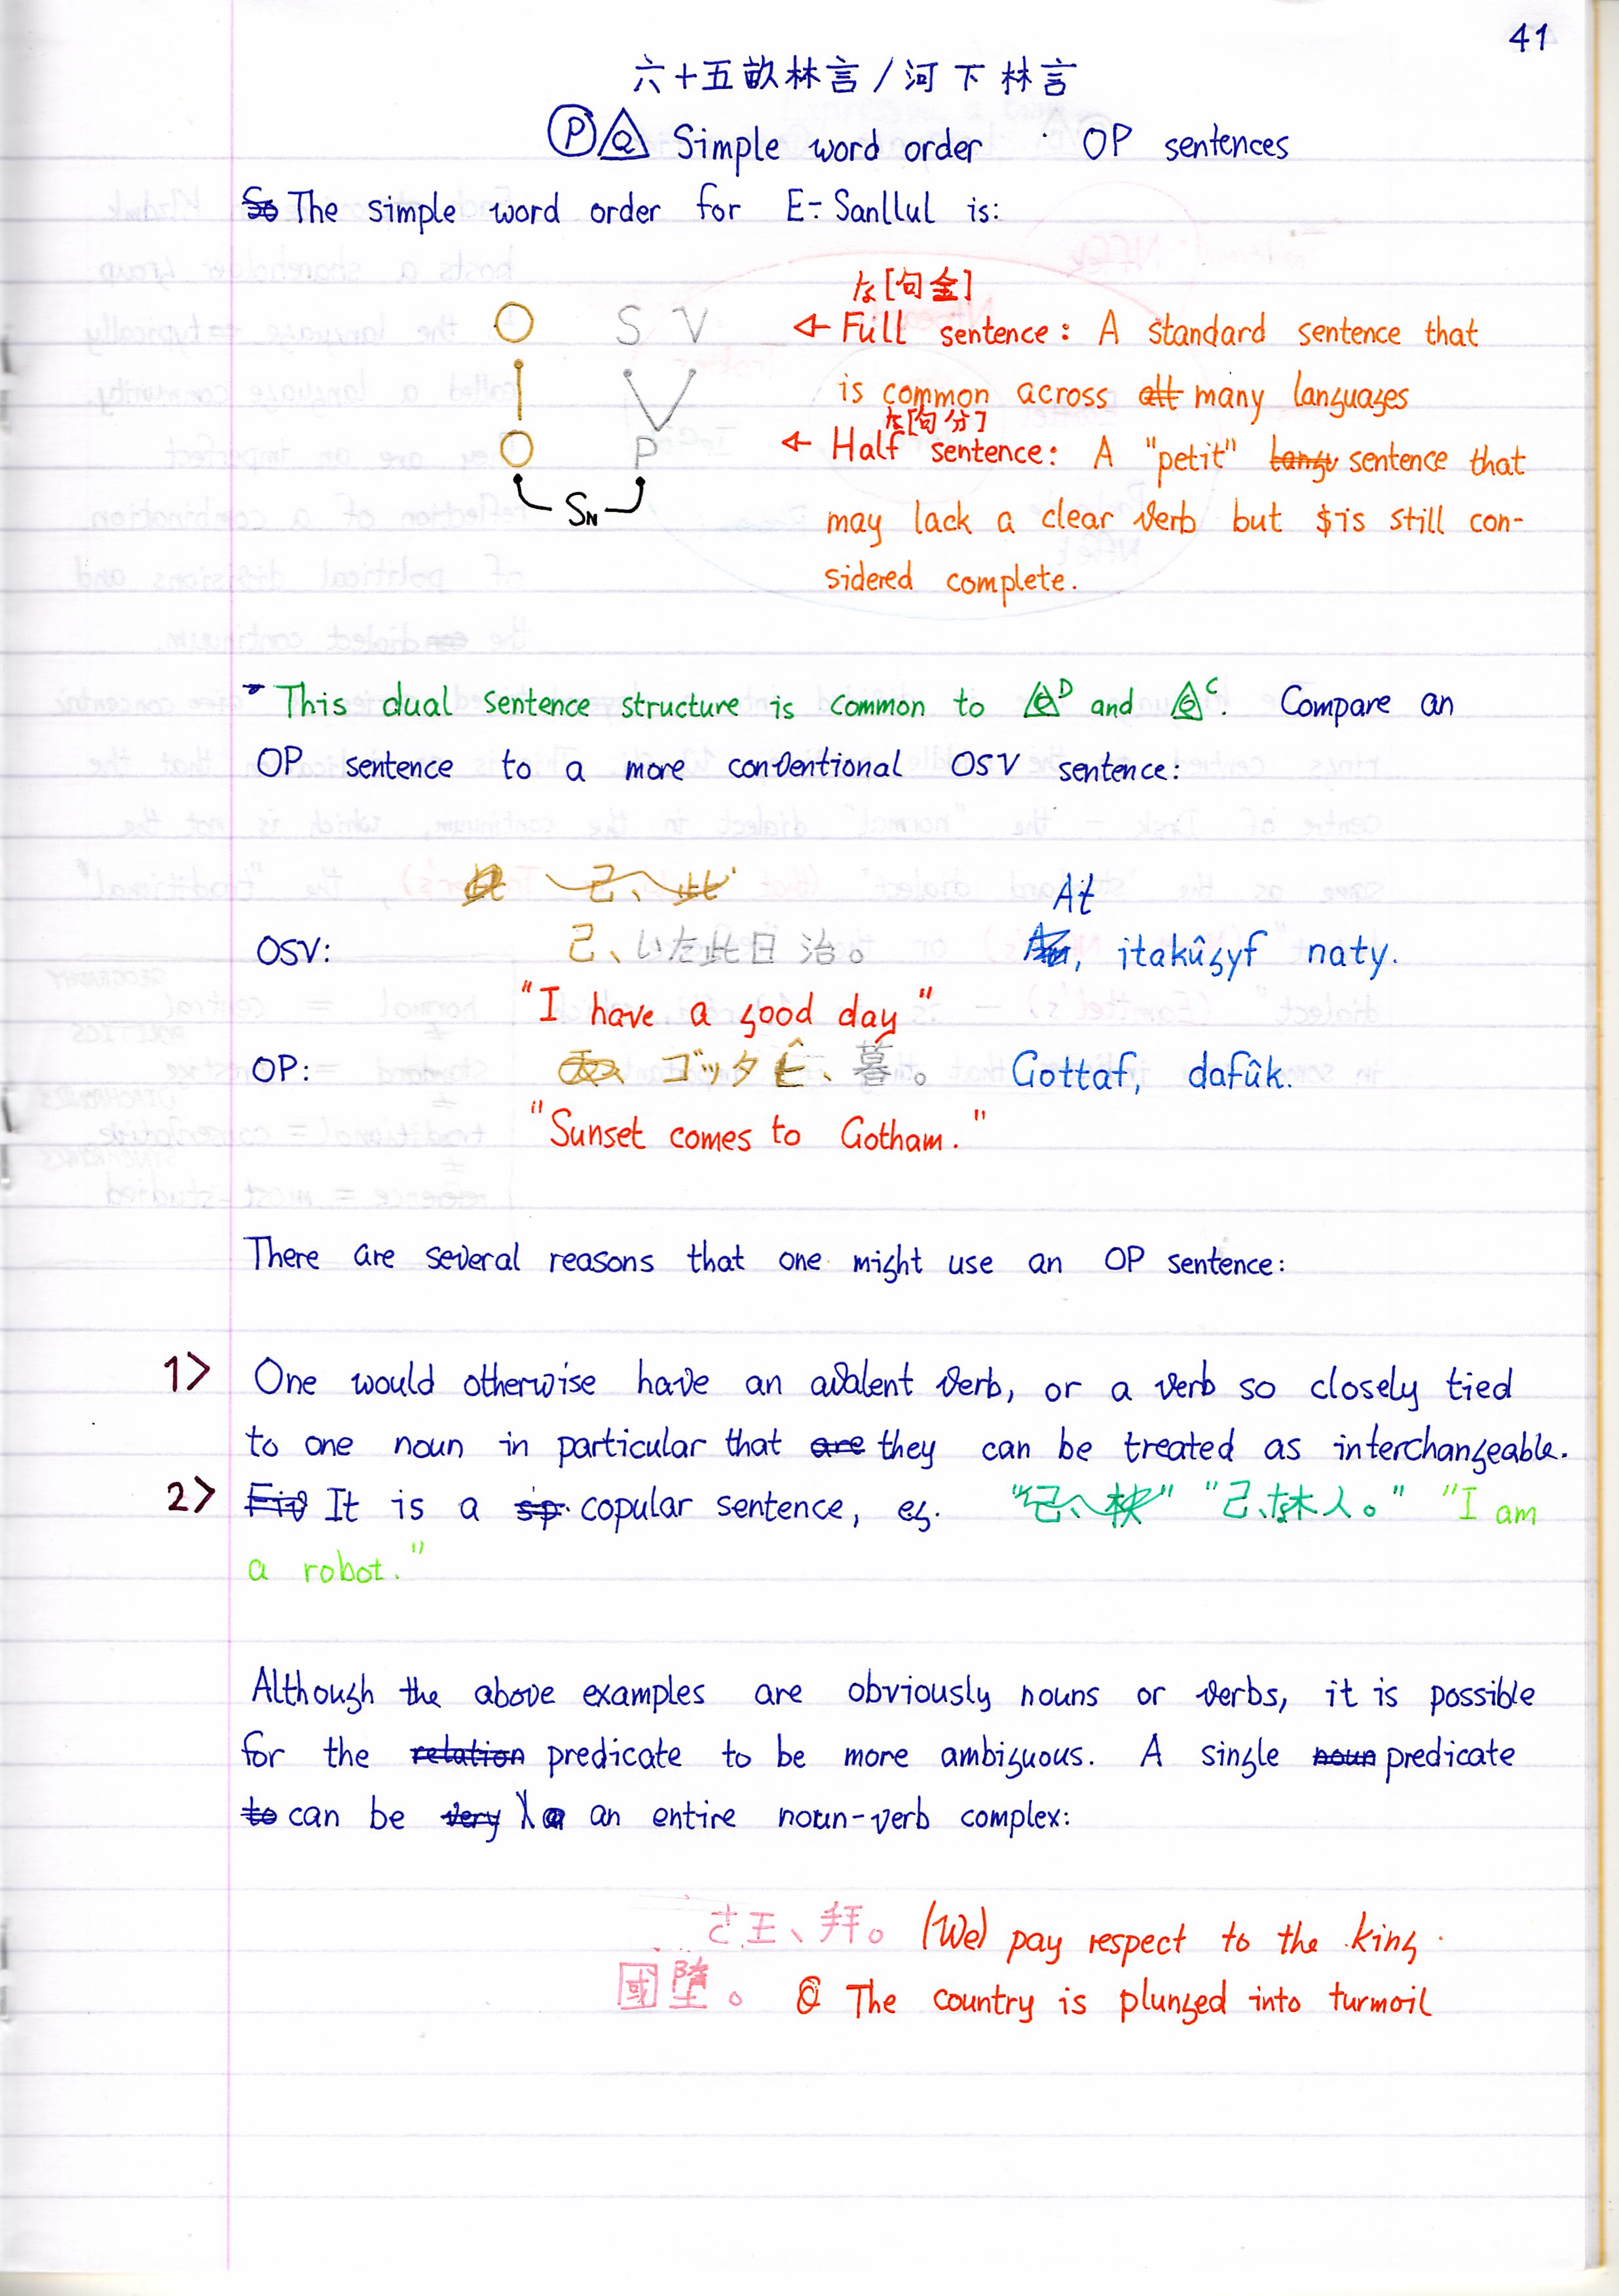 41
六十五畝林言/河下林言
P Q Simple word order OP sentences
So The simple word order for E-Sanllul is:
な[句金]
O S V ← Full sentence: A standard sentence that
is common across all many languages
な[句分]
O P ← Half sentence: A "petit" langu sentence that
S_N
may lack a clear verb but is still con-
sidered complete.
This dual sentence structure is common to and . Compare an
OP sentence to a more conventional OSV sentence:
己、此
At
OSV: 己、いた此日治。 , itakûgyf naty.
"I have a good day"
OP: ゴッタ 、暮。 Gottaf, dafûk.
"Sunset comes to Gotham."
There are several reasons that one might use an OP sentence:
1> One would otherwise have an avalent verb, or a verb so closely tied
to one noun in particular that are they can be treated as interchangeable.
2> It is a sp copular sentence, eg. "己、" "己、な林人。" "I am
a robot."
Although the above examples are obviously nouns or verbs, it is possible
for the relation predicate to be more ambiguous. A single noun predicate
to can be very an entire noun-verb complex:
さ王、拜。 (We) pay respect to the king.
國墮。 The country is plunged into turmoil